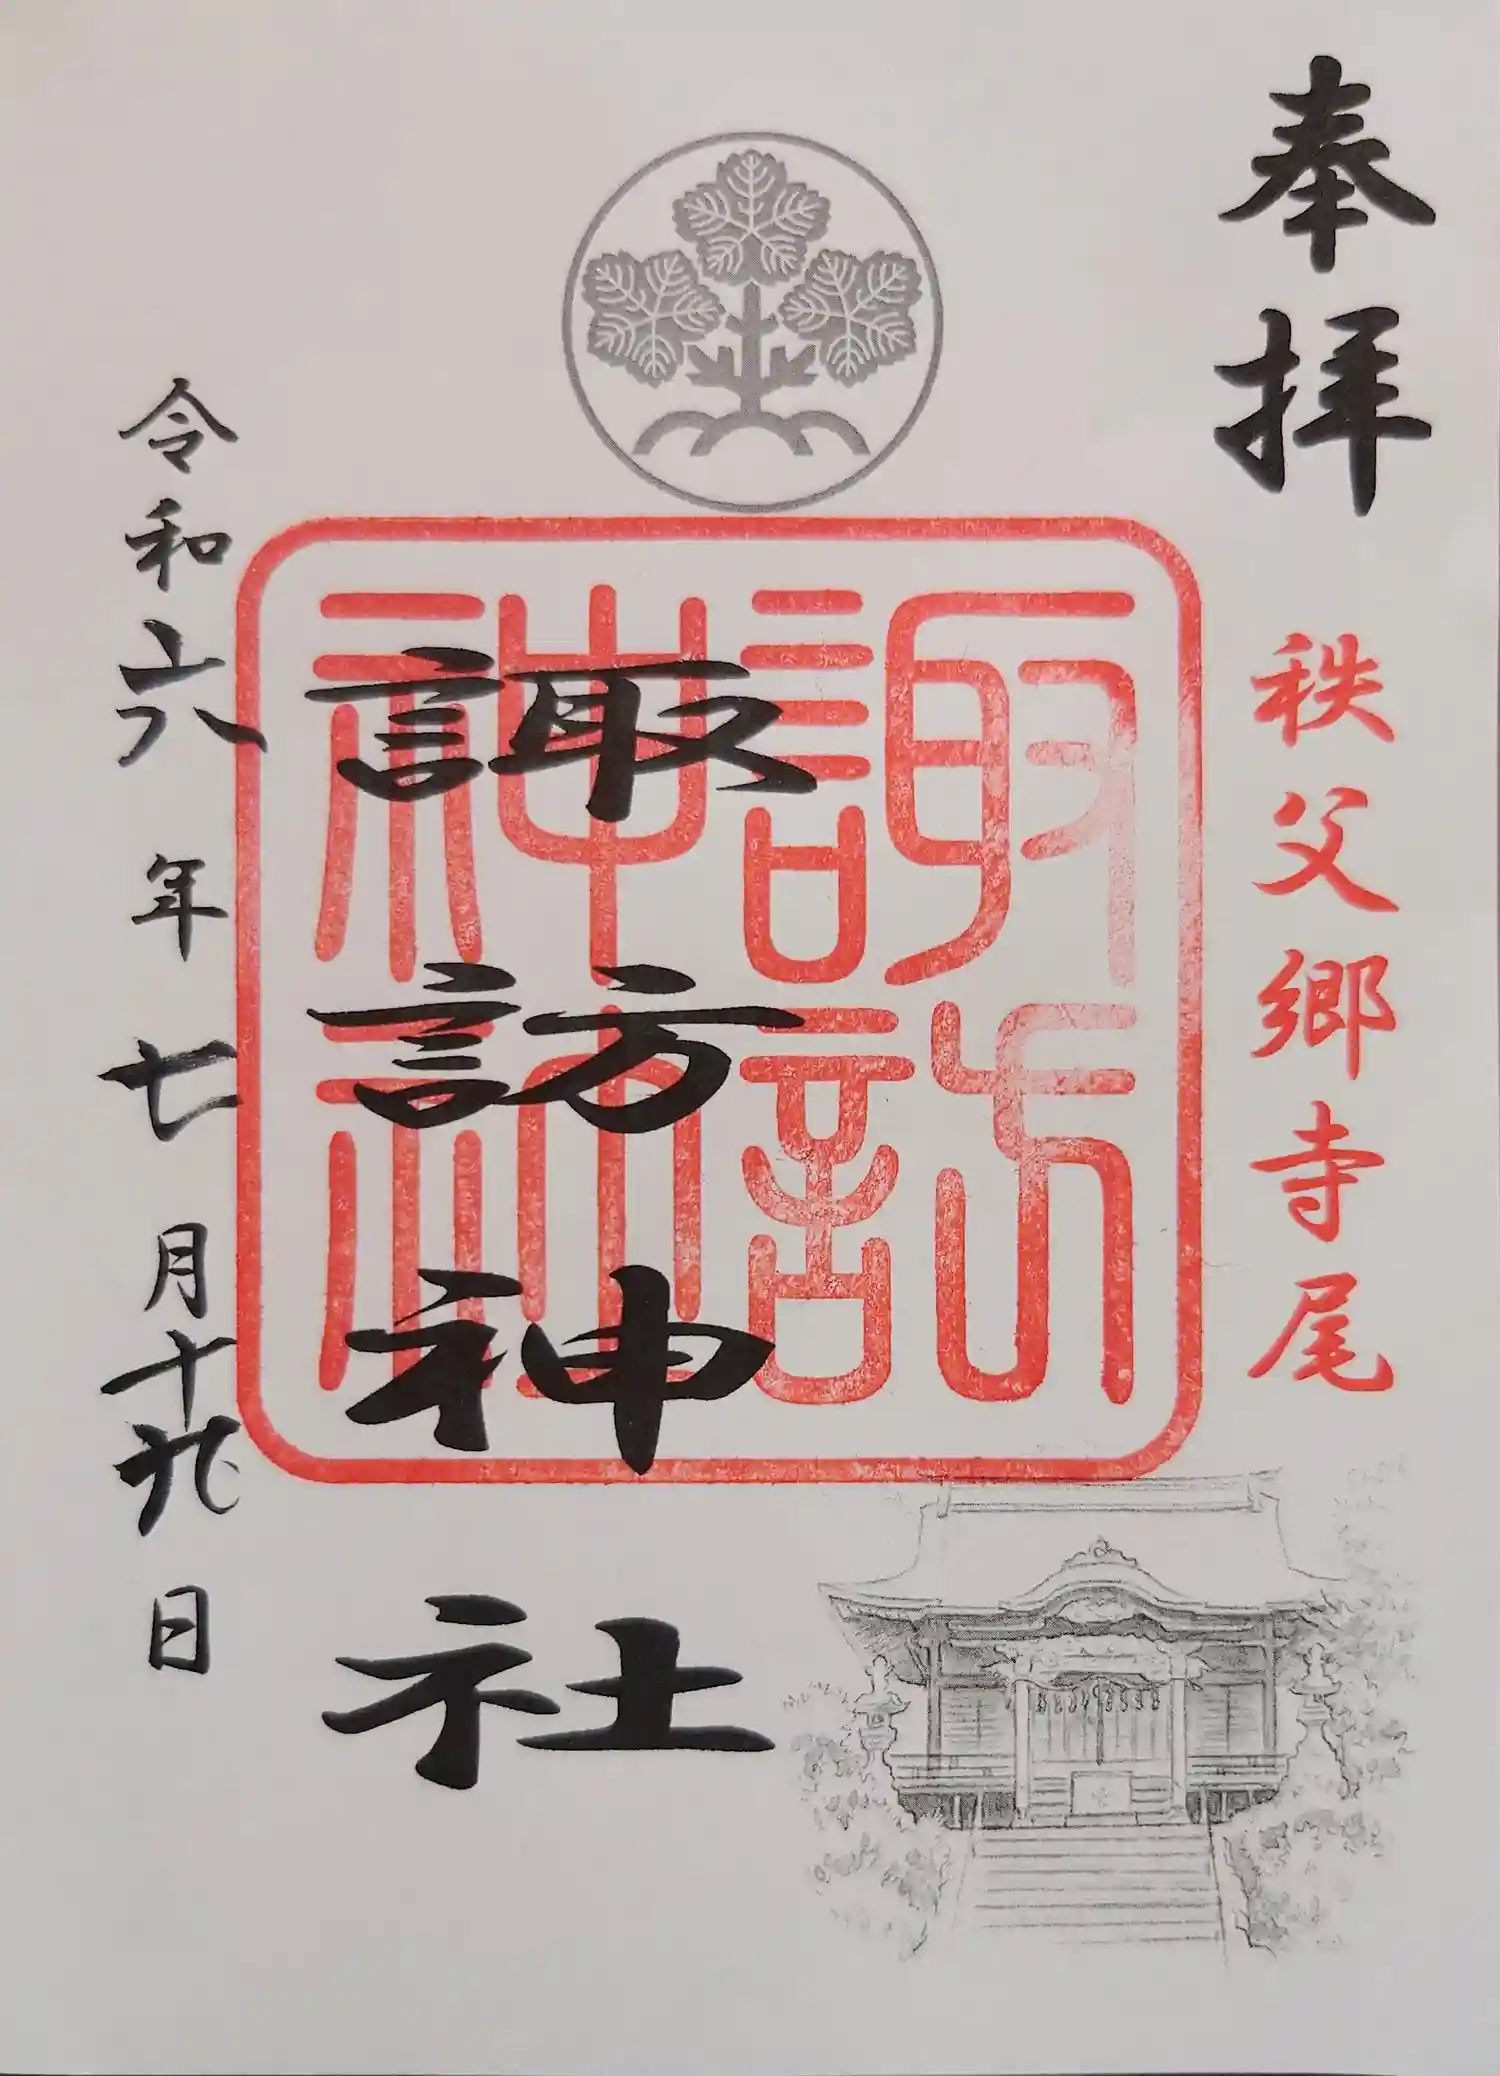 奉拝
秩父郷寺尾
諏訪神社
諏訪神社
令和六年七月十九日